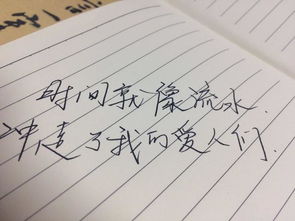 时间就像流水.
冲走了我的爱人们.